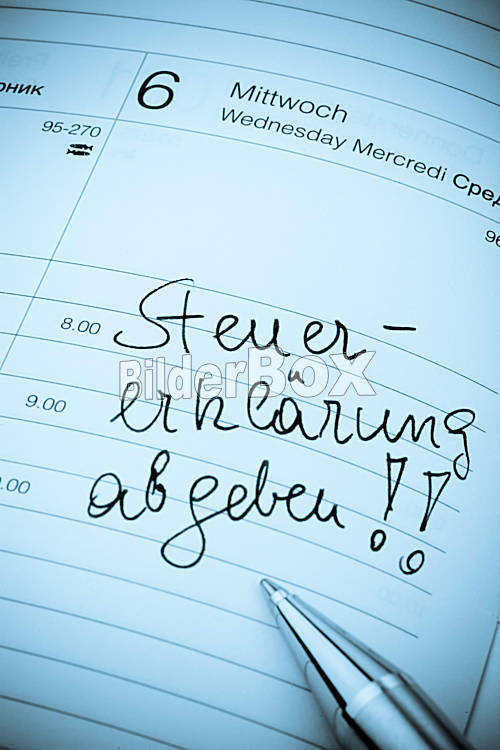 6 Mittwoch
Wednesday Mercredi Сред
рник
95-270
96
8.00
Steuer-
BilderBOX
9.00
erklärung
.00
abgeben!!